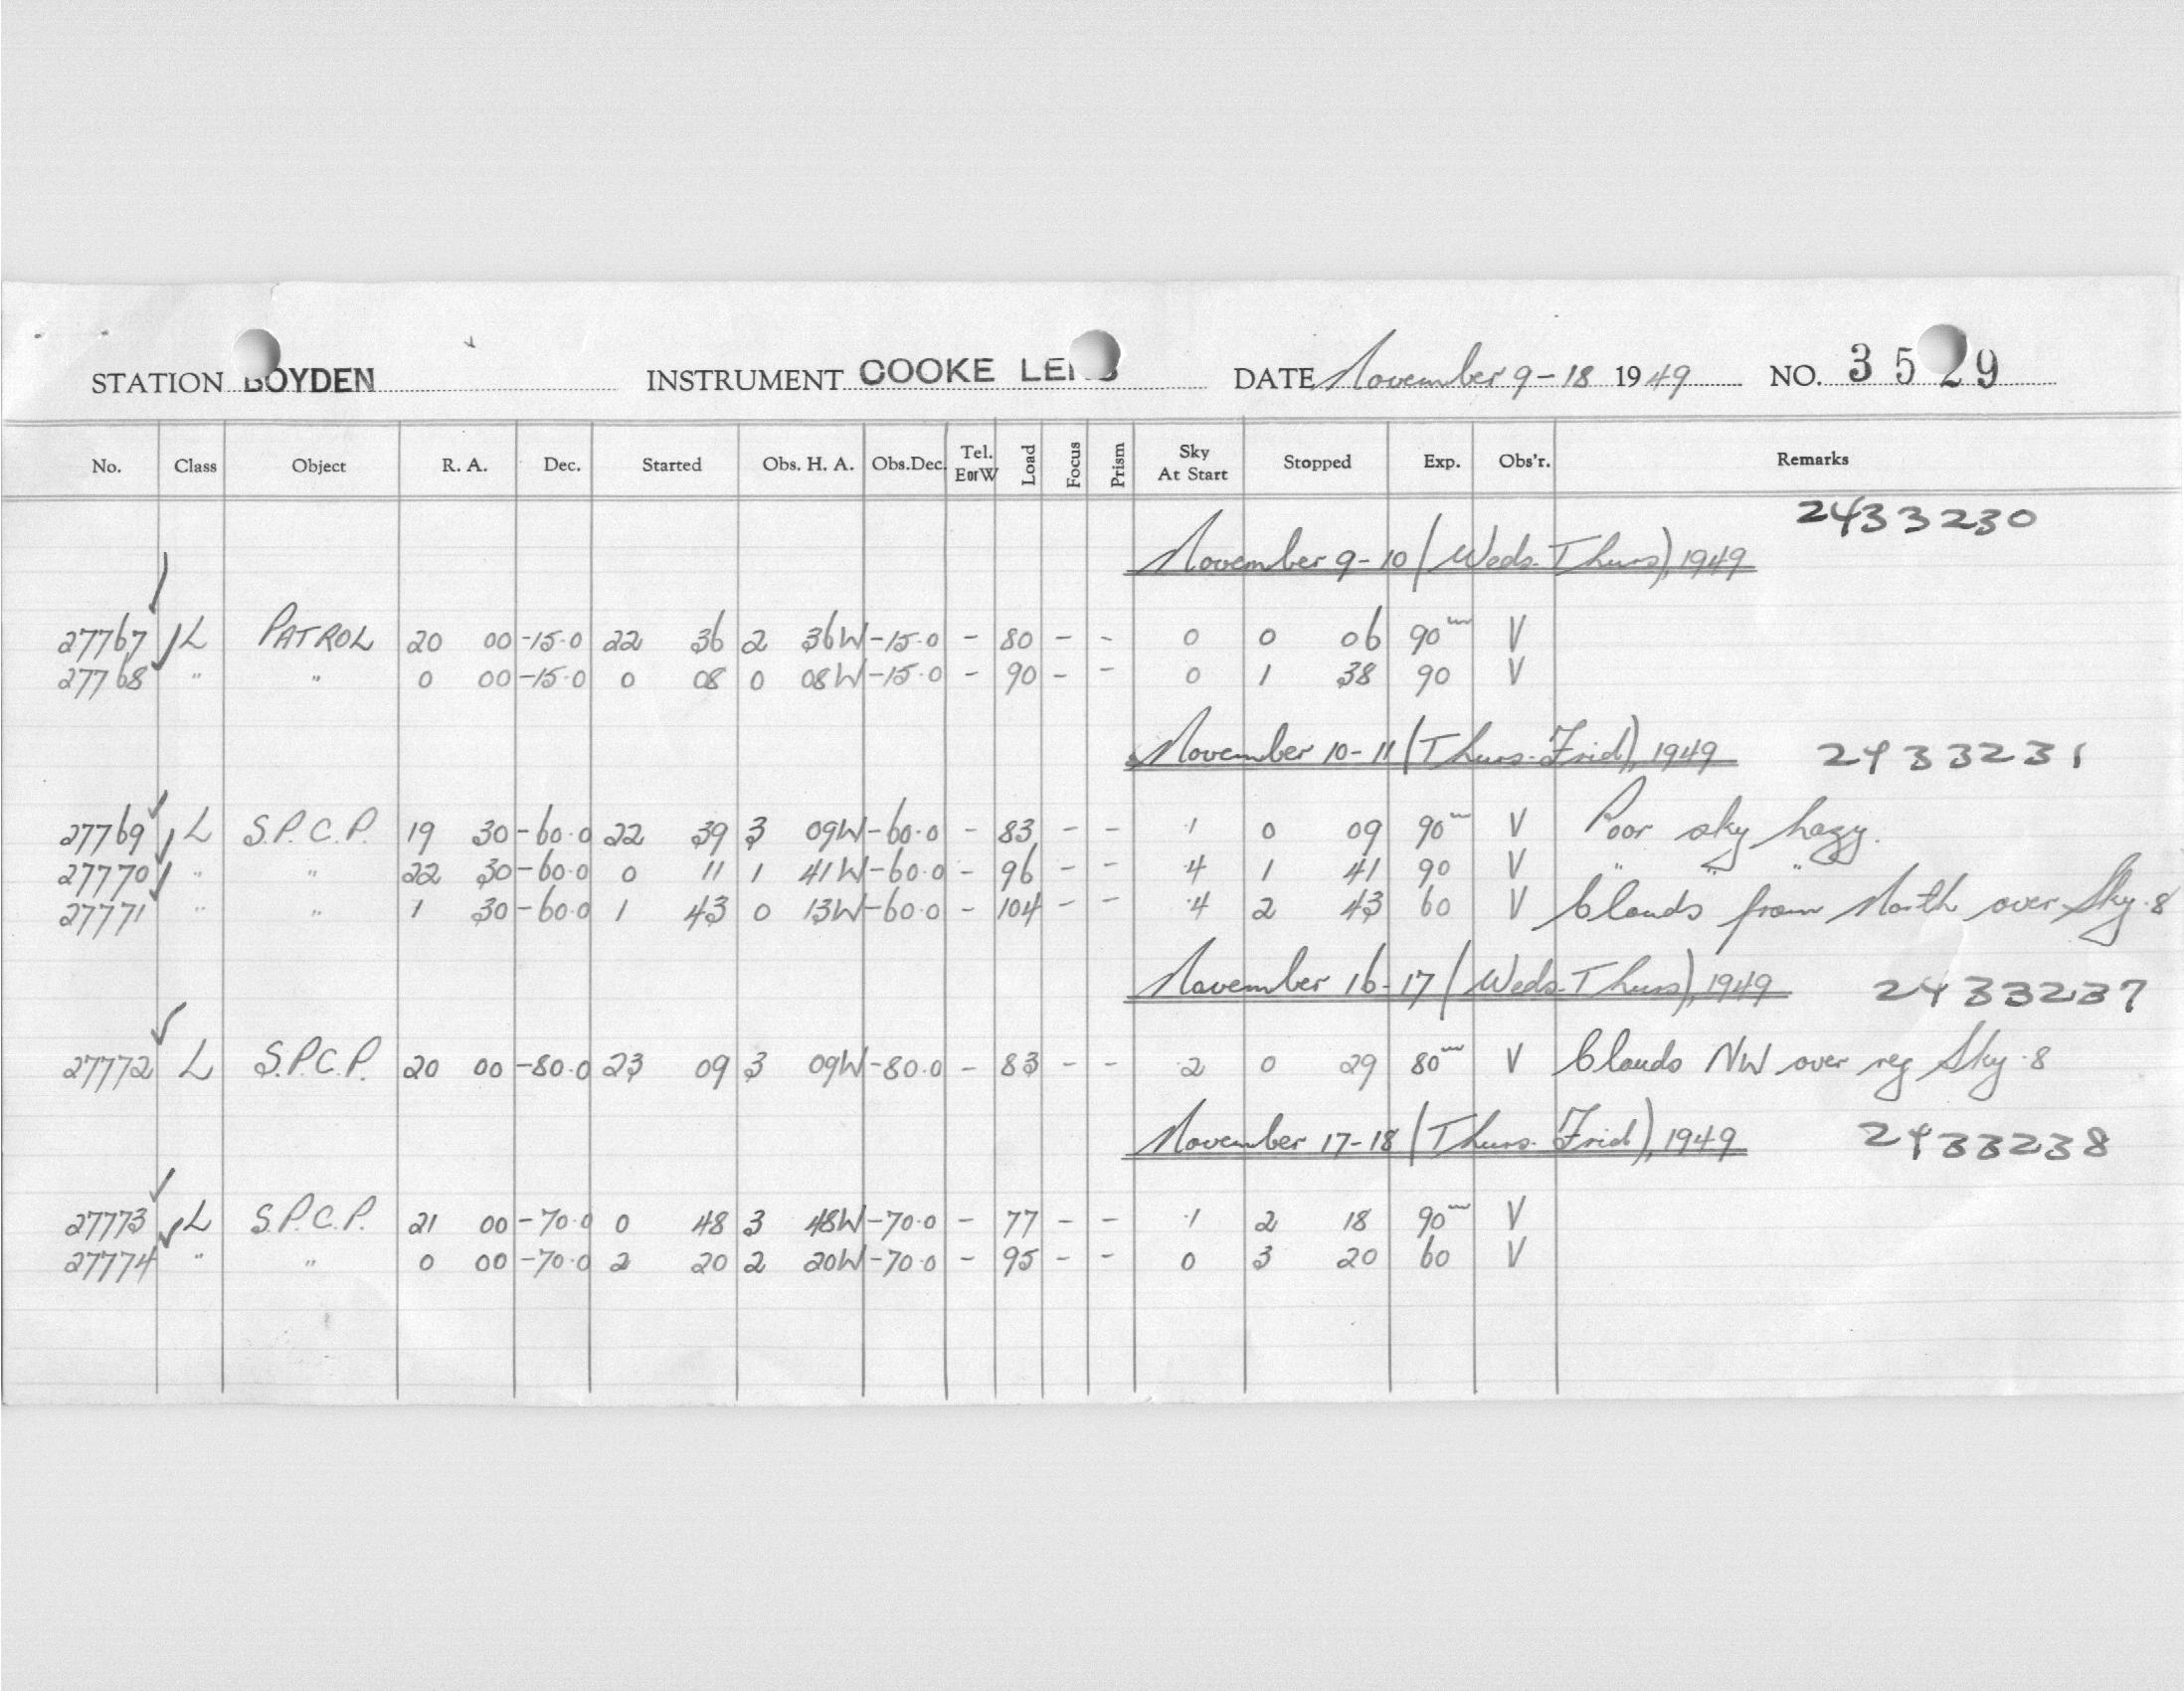 STATION BOYDEN INSTRUMENT COOKE LENS DATE November 9-18 1949 NO. 3529
No. Class Object R. A. Dec. Started Obs. H. A. Obs.Dec. Tel. EorW Load Focus Prism Sky At Start Stopped Exp. Obs'r. Remarks
2433230
November 9-10 (Weds-Thurs), 1949
27767 L PATROL 20 00 -15.0 22 36 2 36W -15.0 - 80 - - 0 0 06 90m V
27768 " " 0 00 -15.0 0 08 0 08W -15.0 - 90 - - 0 1 38 90 V
November 10-11 (Thurs-Frid), 1949 2433231
27769 L S.P.C.P. 19 30 -60.0 22 39 3 09W -60.0 - 83 - - .1 0 09 90m V Poor sky hazy.
27770 " " 22 30 -60.0 0 11 1 41W -60.0 - 96 - - .4 1 41 90 V " " "
27771 " " 1 30 -60.0 1 43 0 13W -60.0 - 104 - - .4 2 43 60 V Clouds from North over Sky .8
November 16-17 (Weds-Thurs), 1949 2433237
27772 L S.P.C.P. 20 00 -80.0 23 09 3 09W -80.0 - 83 - - .2 0 29 80m V Clouds NW over reg Sky .8
November 17-18 (Thurs-Frid), 1949 2433238
27773 L S.P.C.P. 21 00 -70.0 0 48 3 48W -70.0 - 77 - - .1 2 18 90m V
27774 " " 0 00 -70.0 2 20 2 20W -70.0 - 95 - - 0 3 20 60 V